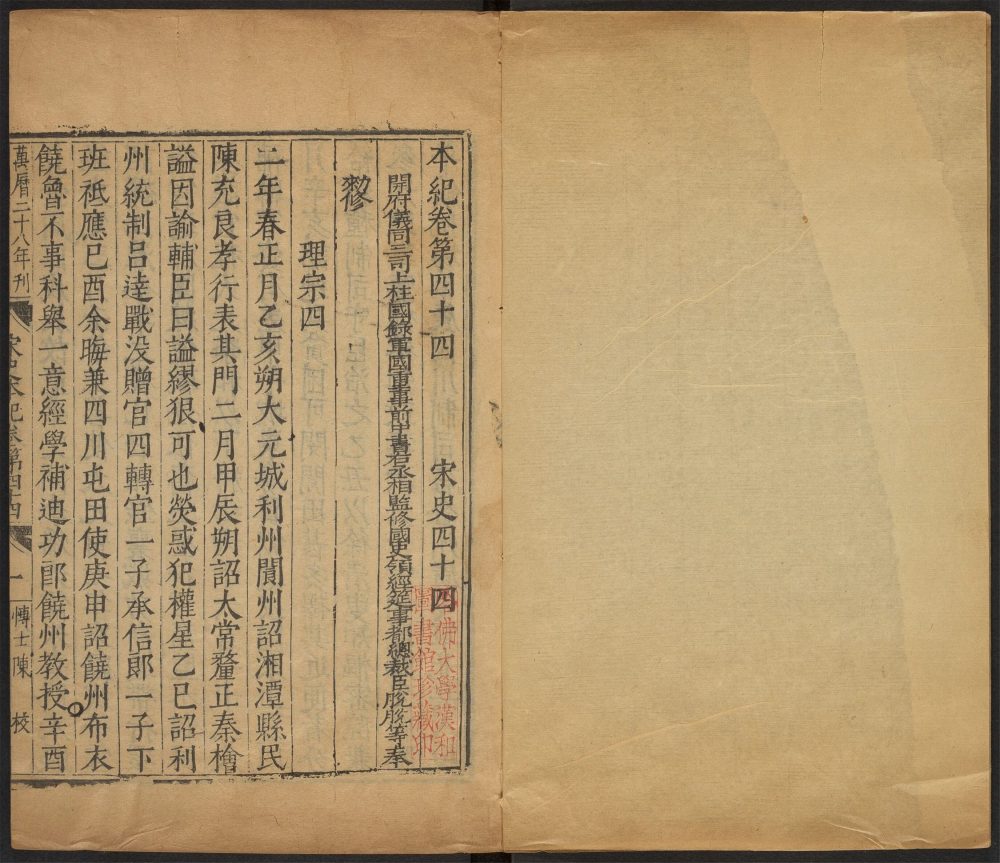 本紀卷第四十四 宋史四十四
開府儀同三司上柱國錄軍國重事前中書右丞相監修國史領經筵事都總裁臣脫脫等奉
敕修
理宗四
二年春正月乙亥朔大元城利州閬州詔湘潭縣民
陳克良孝行表其門二月甲辰朔詔太常釐正秦檜
謚因諭輔臣曰謚繆狠可也熒惑犯權星乙巳詔利
州統制呂達戰没贈官四轉官一子承信郎一子下
班祗應己酉余晦兼四川屯田使庚申詔饒州布衣
饒魯不事科舉一意經學補迪功郎饒州教授辛酉
萬曆二十八年刊
宋史本紀卷第四十四
一
博士陳 校
哈佛大學漢和
圖書館珍藏印